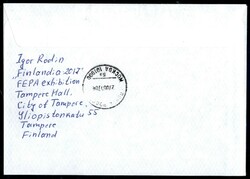 Igor Rodin
„Finlandia 2017"
FEPA exhibition
Tampere Hall.
City of Tampere,
Yliopistonkatu 55
Tampere
Finland
МОСКВА